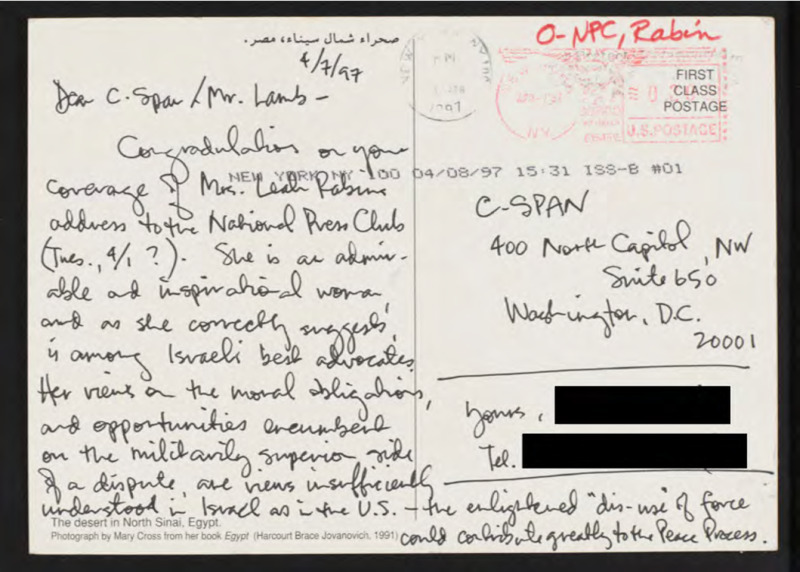 صحراء شمال سيناء، مصر.
O-NPC, Rabin
4/7/97
FIRST
CLASS
POSTAGE
U.S. POSTAGE
NY
NEW YORK NY 100 04/08/97 15:31 ISS-B #01
Dear C-Span / Mr. Lamb -
Congradulations on your
coverage of Mrs. Leah Rabins
address to the National Press Club
(Tues., 4/1 ?). She is an admir-
able and inspirational woman,
and as she correctly suggests,
is among Israeli best advocates.
Her views on the moral obligations,
and opportunities encumbent
on the militarily superior side
of a dispute, are views insufficiently
understood in Israel as in the U.S. - the enlightened "dis-use" of force
could contribute greatly to the Peace Process.
C-SPAN
400 North Capitol, NW
Suite 650
Washington, D.C.
20001
Yours,
Tel.
The desert in North Sinai, Egypt.
Photograph by Mary Cross from her book Egypt (Harcourt Brace Jovanovich, 1991)